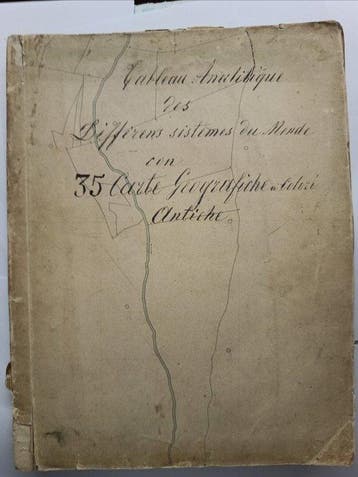 Tableau Analitique
des
Différens sistemes du Monde
con
35 Carte Geografiche a Colori
Antiche